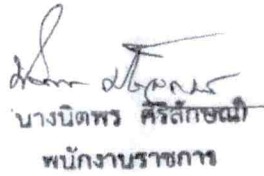 นางนิตพร ศิริลักษณ์
พนักงานราชการ